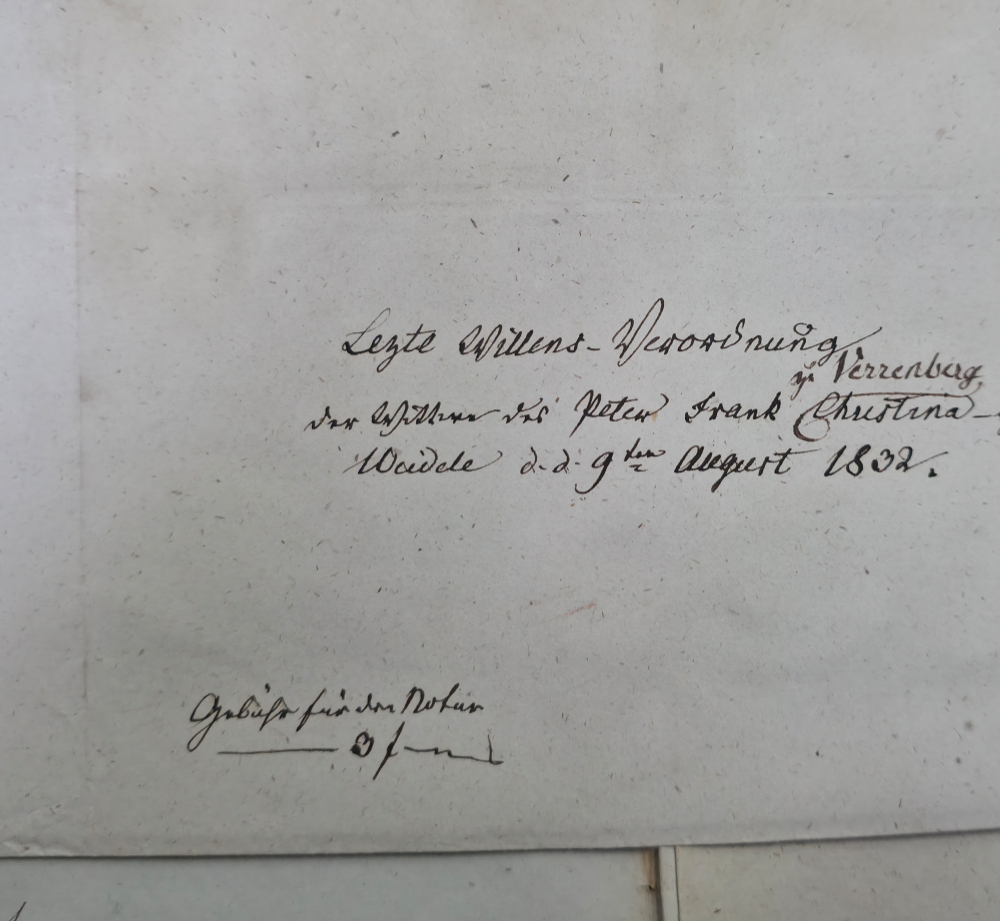 Lezte Willens-Verordnung
zu Verrenberg,
der Wittwe des Peter Frank Christina
Weidele d. d. 9ten August 1832.
Gebühr für den Notar
3 f